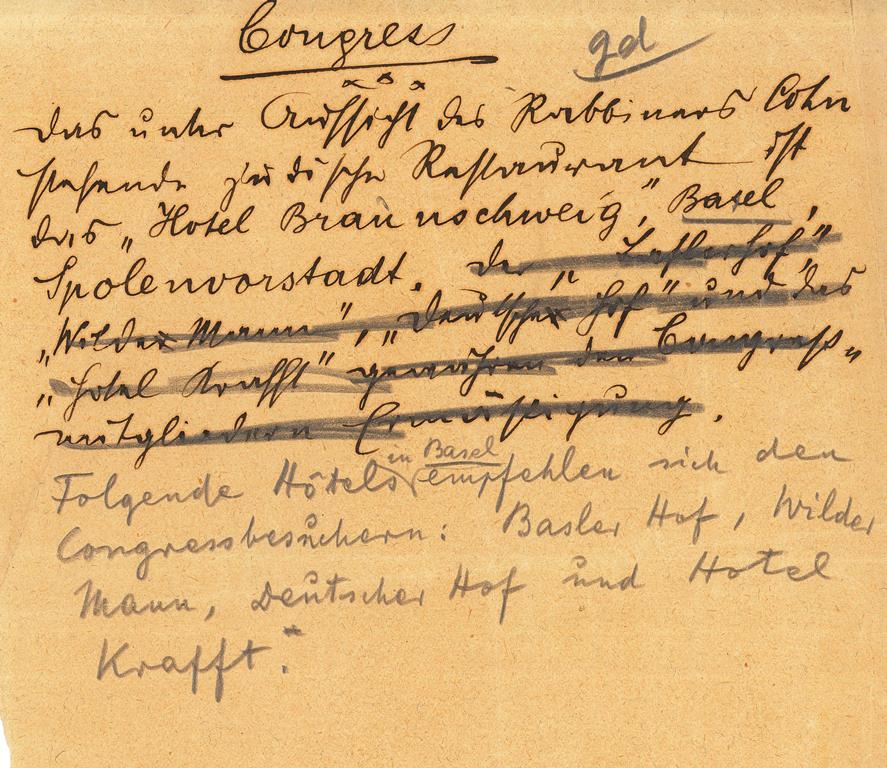 Congress
gd
x x x
Das unter Aufsicht des Rabbiners Cohn
stehende jüdische Restaurant ist
das „Hotel Braunschweig", Basel,
Spolenvorstadt. Der „Baslerhof",
„Wilder Mann", „Deutscher Hof" und das
„Hotel Krafft" gewähren den Congreß-
mitgliedern Ermäßigung.
in Basel
Folgende Hôtels empfehlen sich den
Congressbesuchern: Basler Hof, Wilder
Mann, Deutscher Hof und Hotel
Krafft."